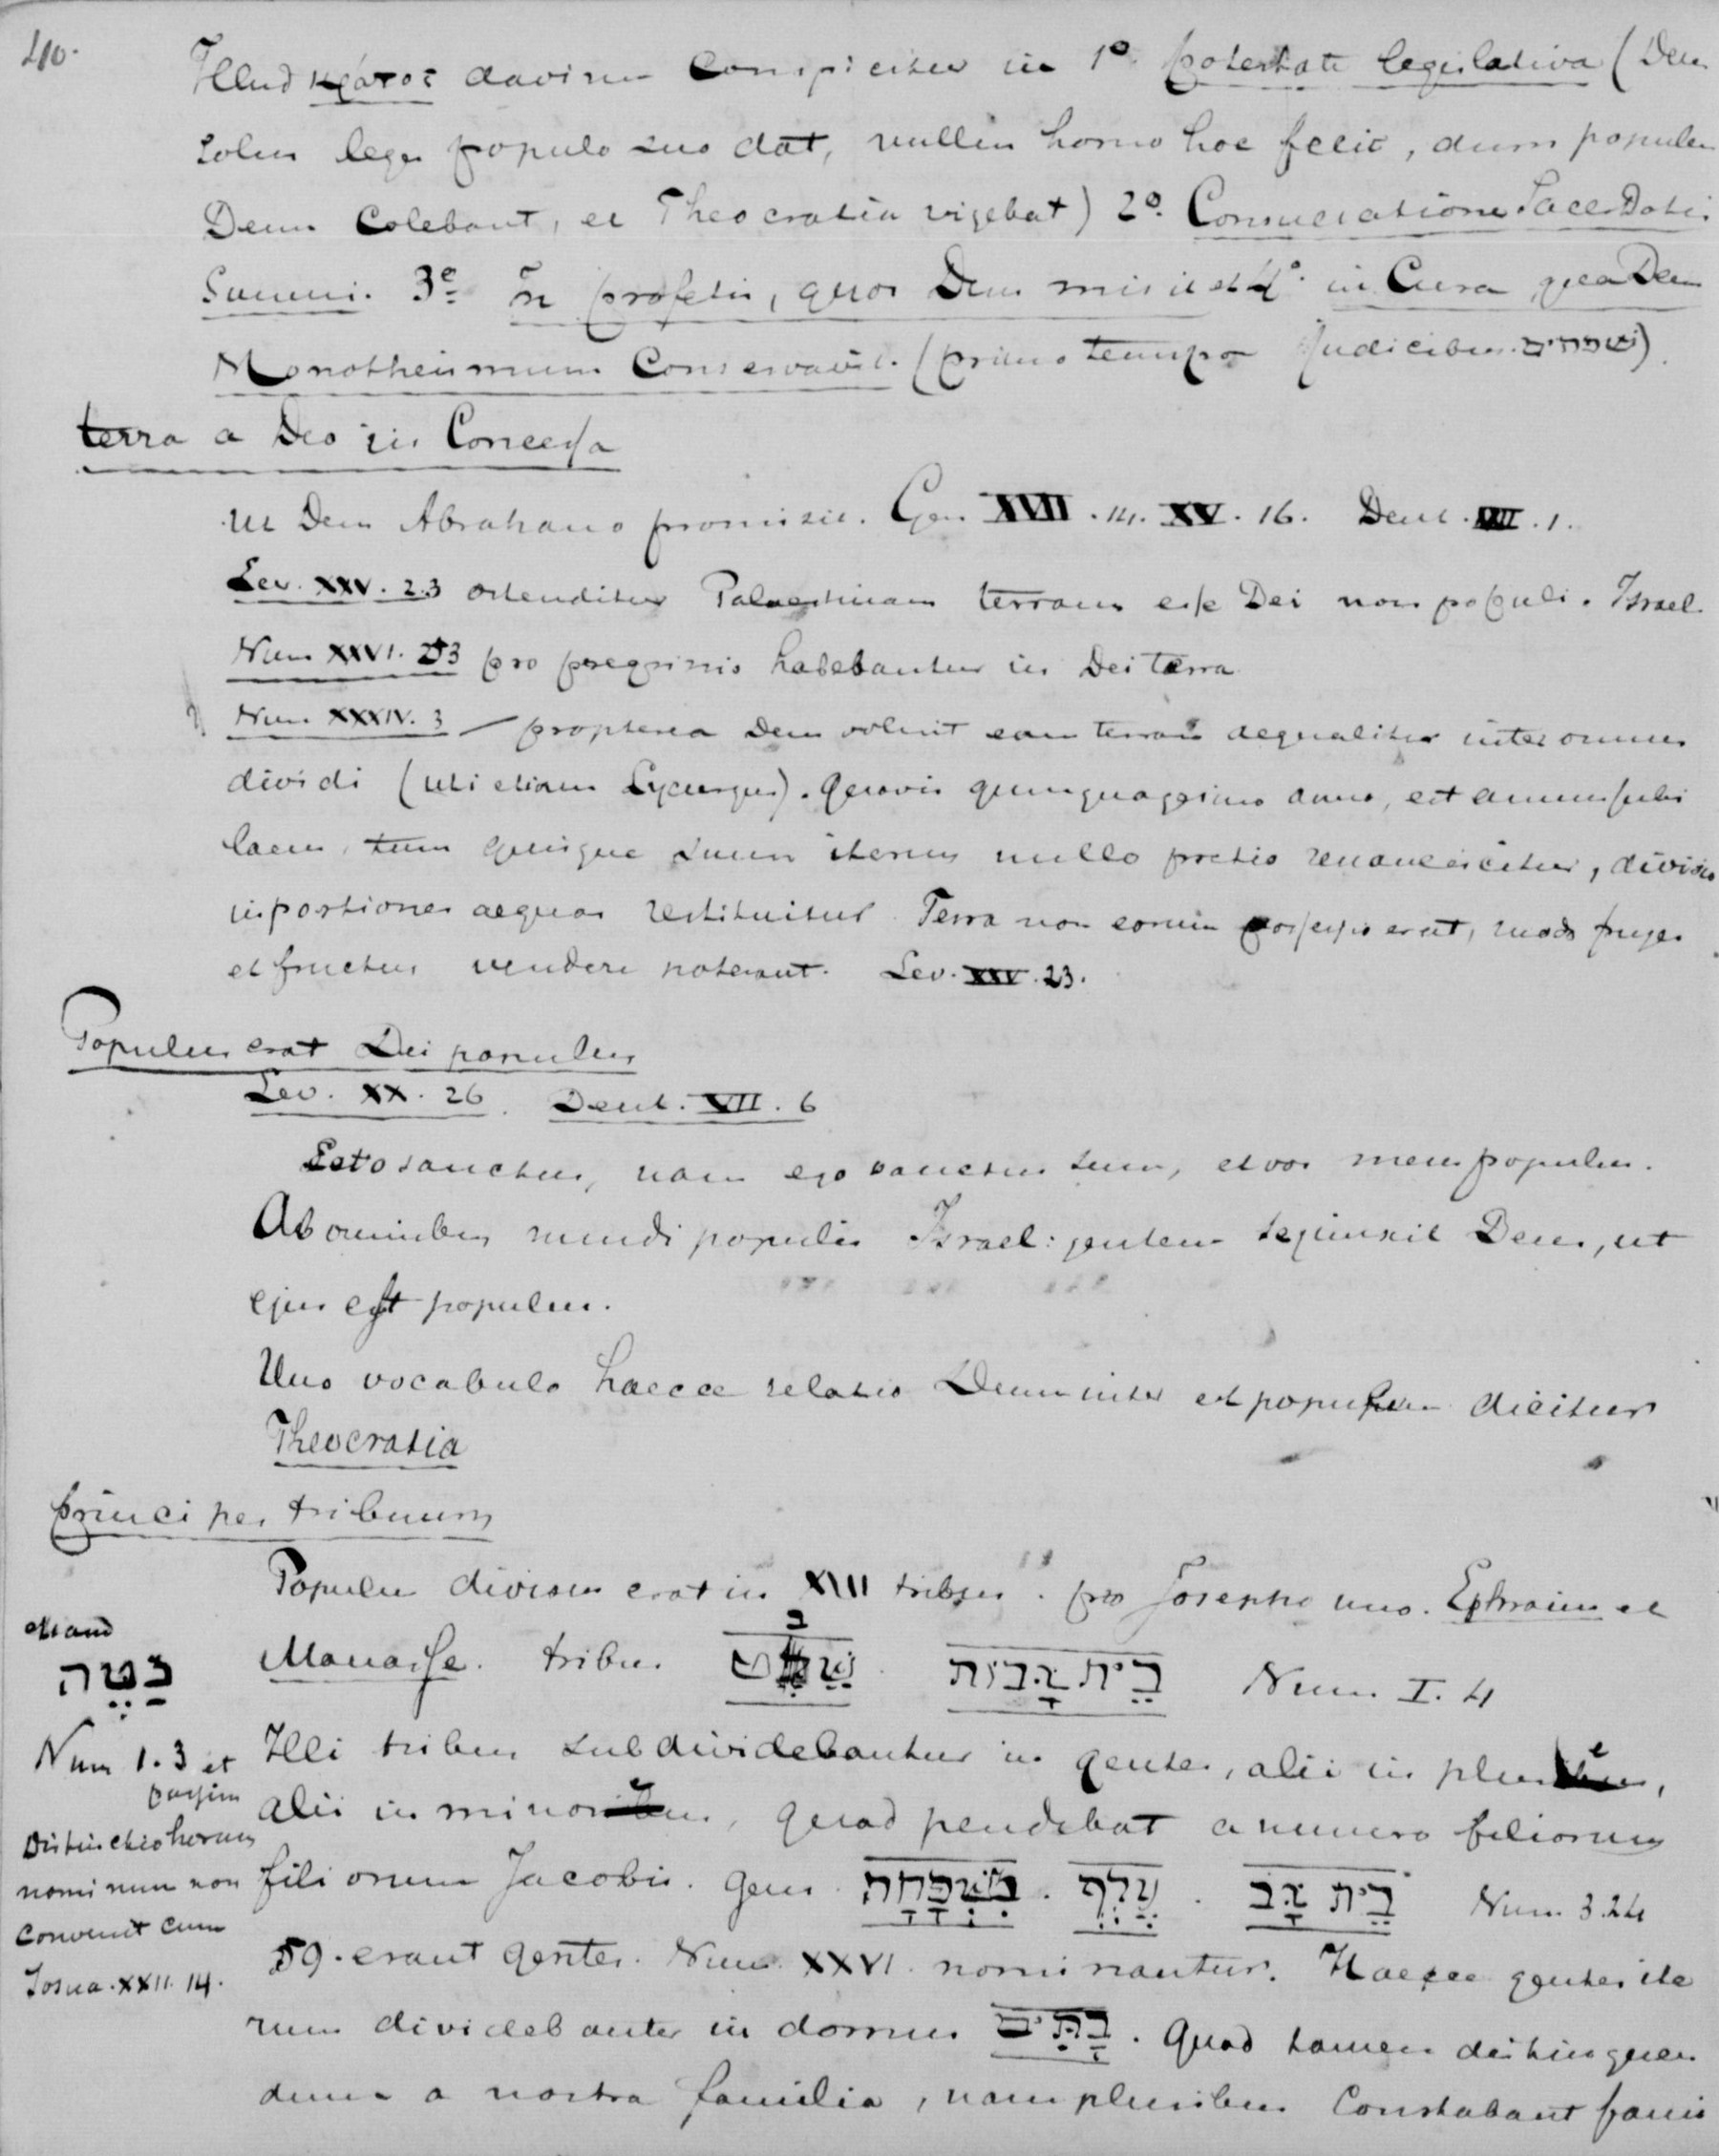 40.
Illud κράτος divinum conspicitur in 1º potestate legislativa (Deus
solus leges populo suo dat, nullus homo hoc fecit, dum populus
Deum colebant, et Theocratia vigebat) 2º. Consecratione Sacerdotis
Summi. 3º in profetis, quos Deus misit et 4º. in Cura qua Deus
Monotheismum Conservavit. (primo tempore Judicibus שפטים).
terra a Deo iis Concessa
ut Deus Abrahamo promisit. Gen XVII. 14. XV. 16. Deut. 1.
Lev. XXV. 23 ostenditur Palaestinam terram esse Dei non populi. Israel.
Num XXVI. 53 pro peregrinis habebantur in Dei terra
Num XXXIV. 3 – propterea Deus voluit eam terram aequaliter inter omnes
dividi (uti etiam Lycurgus). Quovis quinquagesimo anno, est annus jubi
laeus, tum quisque suum iterum nullo pretio renanciscitur, divisio
in portiones aequas restituitur. Terra non eorum possessio erat, modo fruges
et fructus vendere poterant. Lev. XXV. 23.
Populus erat Dei populus
Lev. XX. 26. Deut. VII. 6
Esto sanctus, nam ego sanctus sum, et vos meus populus.
Ab omnibus mundi populis Israel: gentem sejunxit Deus, ut
ejus est populus.
Uno vocabulo haecce relatio Deum inter et populum dicitur
Theocratia
principes tribuum
Populus divisus erat in XIII tribus. pro Josepho uno. Ephraim et
Manasse. tribus שֵׁבֶט. בֵּית אָבוֹת Num. I. 4
Illi tribus subdividebantur in gentes, alii in plures,
alii in minores, quod pendebat a numero filiorum
filiorum Jacobis. gens. מִשְׁפָּחָה. אֶלֶף. בֵּית אָב Num 3.24
59. erant gentes. Num. XXVI. nominantur. Haecce gentes ite
rum dividebantur in domus בָּתִּים. Quod tamen distinguen
dum a nostra familia, nam pluribus Constabant famii
מַטֶּה
Num 1.3 et
passim
Distinctio horum
nominum non
convenit cum
Josua. XXII. 14.